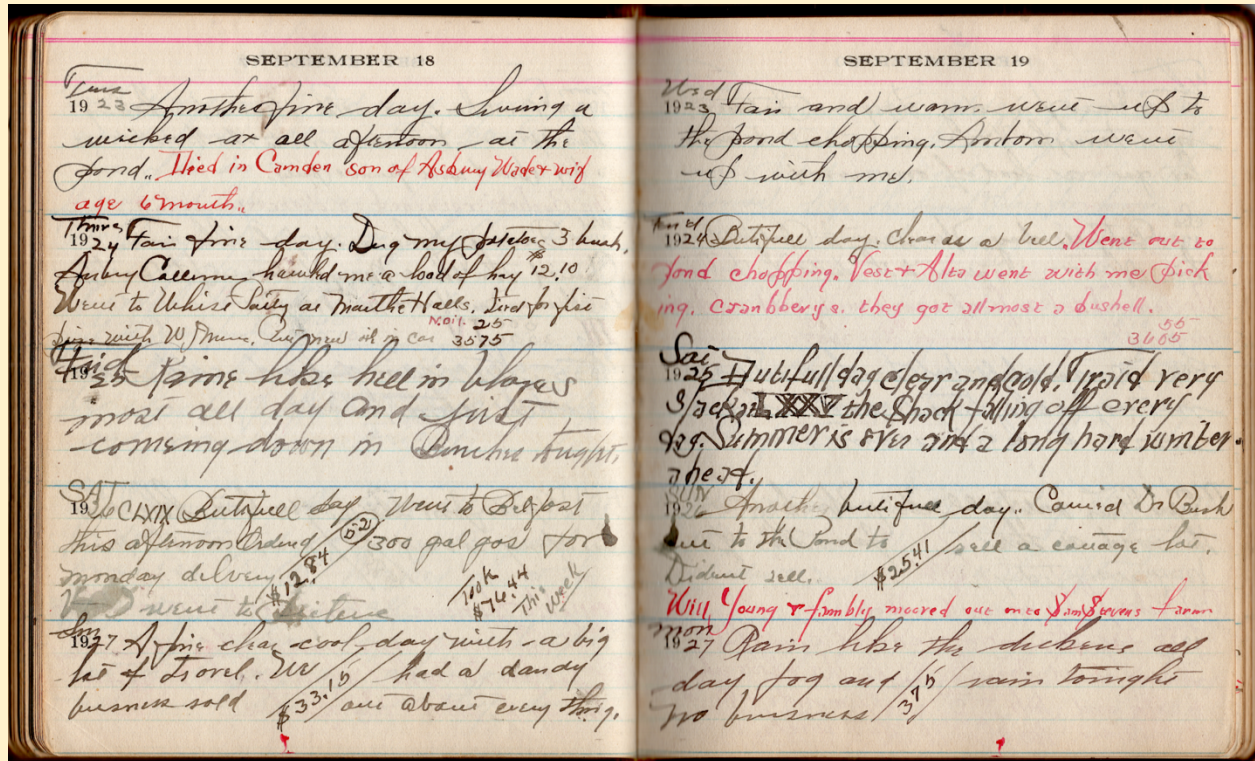 SEPTEMBER 18
Tues
1923 Another fine day. Swung a
wicked ax all afternoon at the
pond.. Died in Camden son of Asbury Wade + wif
age 6 month..
Thurs
1924 Fair fine day. Dug my potatoes 3 bush.
Asbury hauld me a load of hay $12.10
Went to Whist Party at Halls.
N.oil. 25
with W. new oil in car 3575
Frid
1925 Raine like hell in blazes
most all day and just
comeing down in Bunches tonight.
SAT
1926 CLXIX Butifull day Went to Belfast
this afternoon Ordered (52) 300 gal gas for
monday delvery $12.84 Took $76.44 This Week
V + D went to
Sun
1927 A fine clear cool day with a big
lot of travel. We had a dandy
business sold $33.15 out about every thing.
SEPTEMBER 19
Wed
1923 Fair and warm. went up to
the pond chopping. Antom went
up with me.
Frid
1924 Butifull day. clear as a bell. Went out to
pond chopping. Vest + Alta went with me pick
ing. cranbberys. they got allmost a bushell.
55
3605
Sat
1925 Butifull day clear and cold. Traid very
slack LXXV the Shack falling off every
day. Summer is over and a long hard winter
ahead.
SUN
1926 Another butifull day.. Carried Dr Bush
out to the Pond to sell a cottage lot.
Dident sell. $25.41
Will Young & fambly mooved out onto Sam Stevens farm
mon
1927 Rain like the dickens all
day, fog and rain tonight
no business 3.75